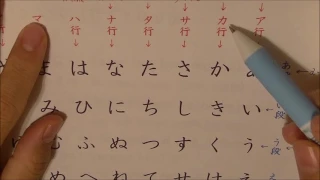 ア行 あ い う え
カ行 か き く け
サ行 さ し す せ
タ行 た ち つ て
ナ行 な に ぬ ね
ハ行 は ひ ふ へ
マ ま み む め
い段
う段